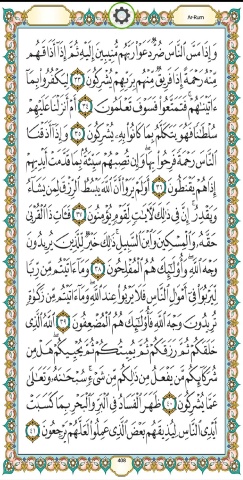 Ar-Rum
وَإِذَا مَسَّ ٱلنَّاسَ ضُرٌّ دَعَوْا۟ رَبَّهُم مُّنِيبِينَ إِلَيْهِ ثُمَّ إِذَآ أَذَاقَهُم
مِّنْهُ رَحْمَةً إِذَا فَرِيقٌ مِّنْهُم بِرَبِّهِمْ يُشْرِكُونَ ٣٣ لِيَكْفُرُوا۟ بِمَآ
ءَاتَيْنَـٰهُمْ ۚ فَتَمَتَّعُوا۟ فَسَوْفَ تَعْلَمُونَ ٣٤ أَمْ أَنزَلْنَا عَلَيْهِمْ
سُلْطَـٰنًا فَهُوَ يَتَكَلَّمُ بِمَا كَانُوا۟ بِهِۦ يُشْرِكُونَ ٣٥ وَإِذَآ أَذَقْنَا
ٱلنَّاسَ رَحْمَةً فَرِحُوا۟ بِهَا ۖ وَإِن تُصِبْهُمْ سَيِّئَةٌۢ بِمَا قَدَّمَتْ أَيْدِيهِمْ
إِذَا هُمْ يَقْنَطُونَ ٣٦ أَوَلَمْ يَرَوْا۟ أَنَّ ٱللَّهَ يَبْسُطُ ٱلرِّزْقَ لِمَن يَشَآءُ
وَيَقْدِرُ ۚ إِنَّ فِى ذَٰلِكَ لَـَٔايَـٰتٍ لِّقَوْمٍ يُؤْمِنُونَ ٣٧ فَـَٔاتِ ذَا ٱلْقُرْبَىٰ
حَقَّهُۥ وَٱلْمِسْكِينَ وَٱبْنَ ٱلسَّبِيلِ ۚ ذَٰلِكَ خَيْرٌ لِّلَّذِينَ يُرِيدُونَ
وَجْهَ ٱللَّهِ ۖ وَأُو۟لَـٰٓئِكَ هُمُ ٱلْمُفْلِحُونَ ٣٨ وَمَآ ءَاتَيْتُم مِّن رِّبًا
لِّيَرْبُوَا۟ فِىٓ أَمْوَٰلِ ٱلنَّاسِ فَلَا يَرْبُوا۟ عِندَ ٱللَّهِ ۖ وَمَآ ءَاتَيْتُم مِّن زَكَوٰةٍ
تُرِيدُونَ وَجْهَ ٱللَّهِ فَأُو۟لَـٰٓئِكَ هُمُ ٱلْمُضْعِفُونَ ٣٩ ٱللَّهُ ٱلَّذِى
خَلَقَكُمْ ثُمَّ رَزَقَكُمْ ثُمَّ يُمِيتُكُمْ ثُمَّ يُحْيِيكُمْ ۖ هَلْ مِن
شُرَكَآئِكُم مَّن يَفْعَلُ مِن ذَٰلِكُم مِّن شَىْءٍ ۚ سُبْحَـٰنَهُۥ وَتَعَـٰلَىٰ
عَمَّا يُشْرِكُونَ ٤٠ ظَهَرَ ٱلْفَسَادُ فِى ٱلْبَرِّ وَٱلْبَحْرِ بِمَا كَسَبَتْ
أَيْدِى ٱلنَّاسِ لِيُذِيقَهُم بَعْضَ ٱلَّذِى عَمِلُوا۟ لَعَلَّهُمْ يَرْجِعُونَ ٤١
408